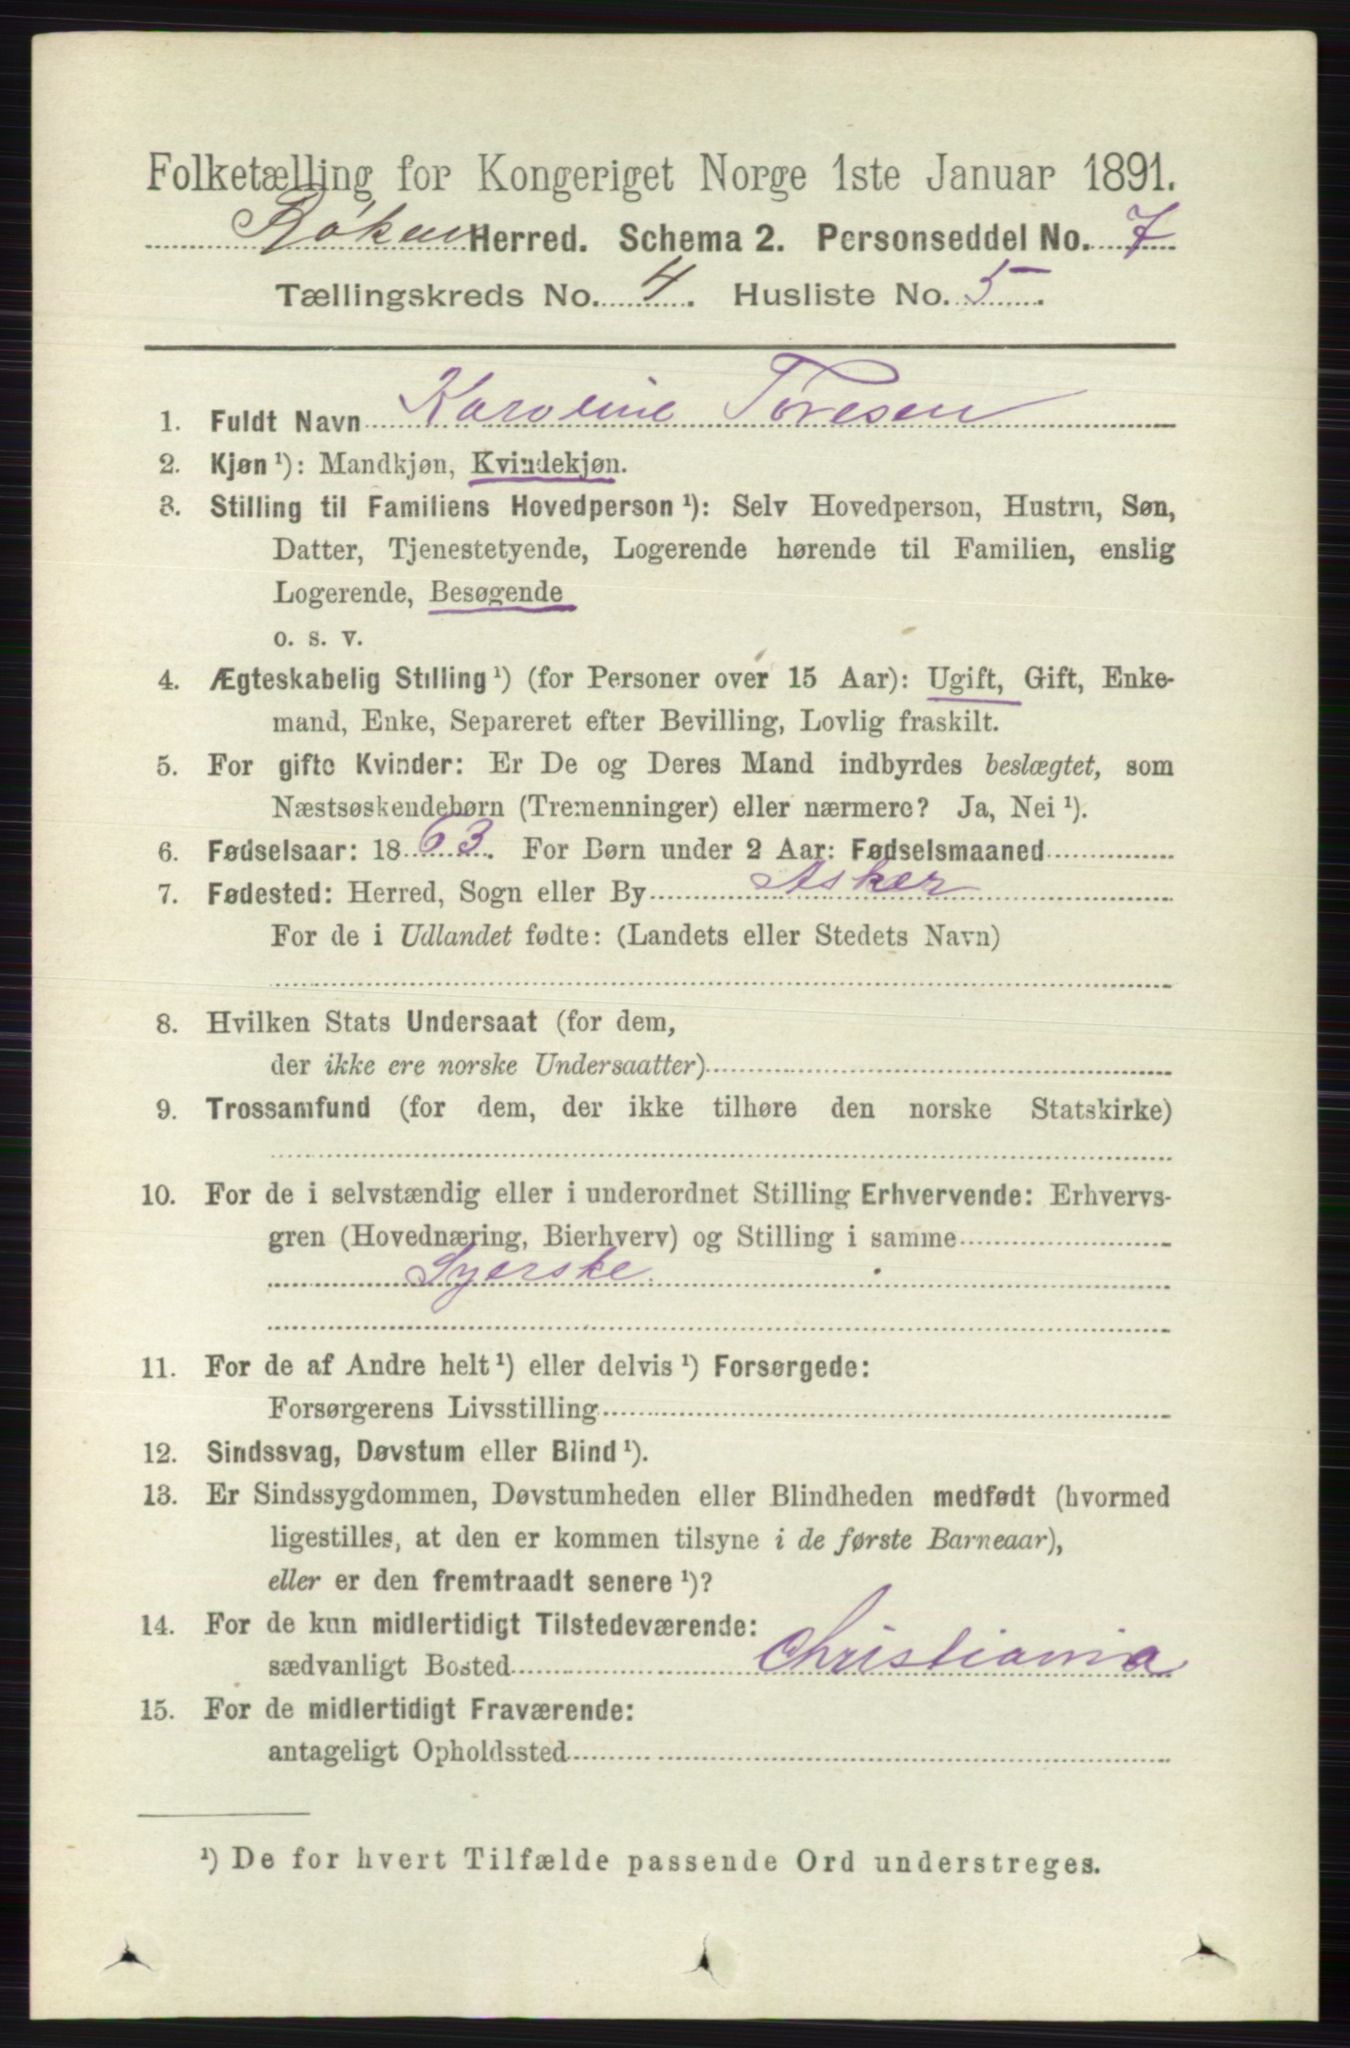 Folketælling for Kongeriget Norge 1ste Januar 1891.
Røken Herred. Schema 2. Personseddel No. 7
Tællingskreds No. 4. Husliste No. 5.
1. Fuldt Navn Karoline Toresen
2. Kjøn ¹): Mandkjøn, Kvindekjøn.
3. Stilling til Familiens Hovedperson ¹): Selv Hovedperson, Hustru, Søn,
Datter, Tjenestetyende, Logerende hørende til Familien, enslig
Logerende, Besøgende
o. s. v.
4. Ægteskabelig Stilling ¹) (for Personer over 15 Aar): Ugift, Gift, Enke-
mand, Enke, Separeret efter Bevilling, Lovlig fraskilt.
5. For gifte Kvinder: Er De og Deres Mand indbyrdes beslægtet, som
Næstsøskendebørn (Tremenninger) eller nærmere? Ja, Nei ¹).
6. Fødselsaar: 1863. For Børn under 2 Aar: Fødselsmaaned
7. Fødested: Herred, Sogn eller By Asker
For de i Udlandet fødte: (Landets eller Stedets Navn)
8. Hvilken Stats Undersaat (for dem,
der ikke ere norske Undersaatter)
9. Trossamfund (for dem, der ikke tilhøre den norske Statskirke)
10. For de i selvstændig eller i underordnet Stilling Erhvervende: Erhvervs-
gren (Hovednæring, Bierhverv) og Stilling i samme
Syerske
11. For de af Andre helt ¹) eller delvis ¹) Forsørgede:
Forsørgerens Livsstilling
12. Sindssvag, Døvstum eller Blind ¹).
13. Er Sindssygdommen, Døvstumheden eller Blindheden medfødt (hvormed
ligestilles, at den er kommen tilsyne i de første Barneaar),
eller er den fremtraadt senere ¹)?
14. For de kun midlertidigt Tilstedeværende:
sædvanligt Bosted Christiania
15. For de midlertidigt Fraværende:
antageligt Opholdssted
¹) De for hvert Tilfælde passende Ord understreges.